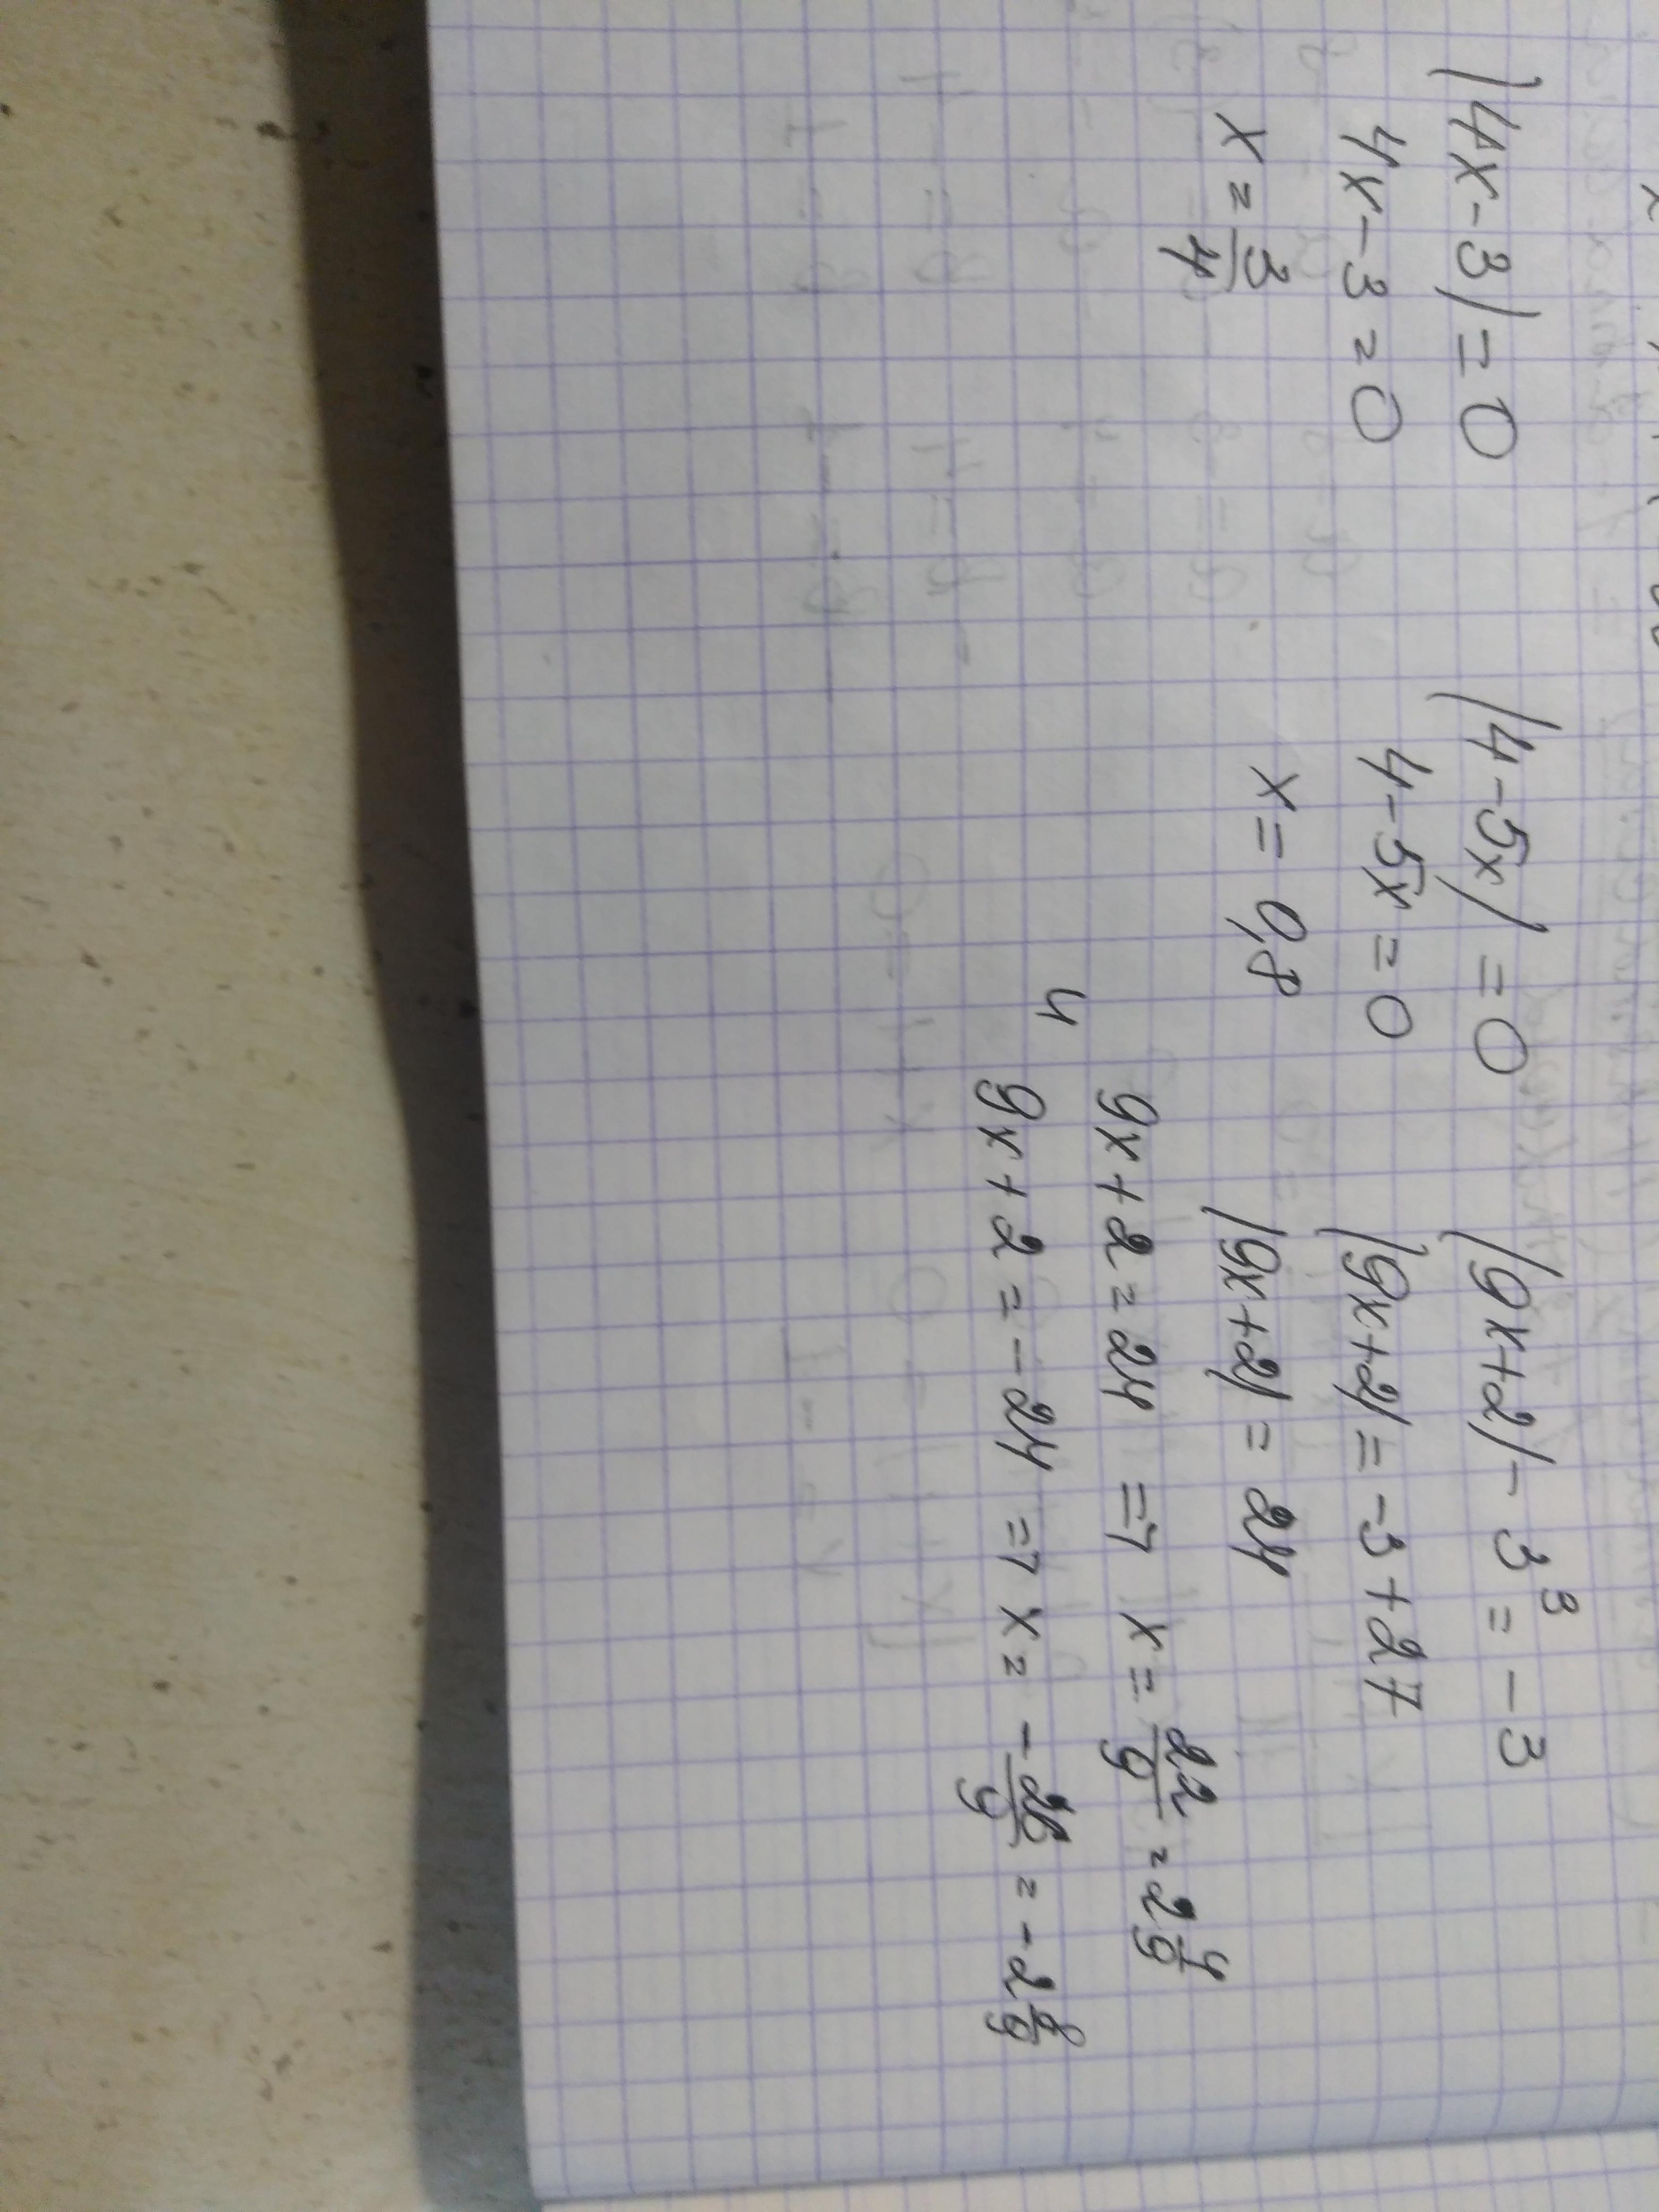 |4x-3|=0
4x-3=0
x=3/4
|4-5x|=0
4-5x=0
x=0,8
|9x+2|-3³=-3
|9x+2|=-3+27
|9x+2|=24
9x+2=24 => x=22/9=2 4/9
и
9x+2=-24 => x=-26/9=-2 8/9